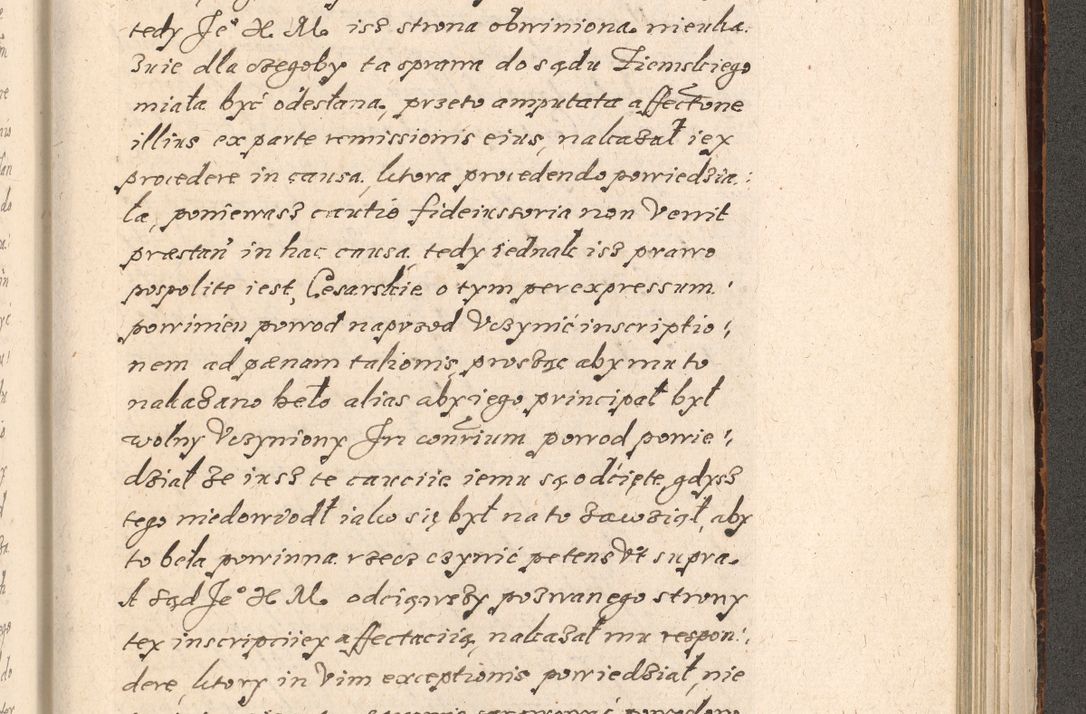 tedy Je° X. M. isz strona obwiniona nieuka:
zuie dla czegoby ta sprawa do sądu Ziemskiego
miała być odesłana, przeto amputata affectõne
illius ex parte remissionis eius, nakazał iex
procedere in causa, ktora procedendo powiedzia:
ła, poniewasz cautio fideiussoria non venit
præstań in hac causa, tedy iednak isz prawo
pospolite iest, Cesarskie o tym per expressum
powinien powod naprzod uczynić inscriptio:
nem ad pænam talionis, prosząc aby mu to
nakazano beło alias aby iego principał był
wolny uczyniony In conrium powod powie:
dział że iusz te cauciie iemu są odcięte, gdysz
tego niedowiodł iako się był na to zawziął, aby
to beła powinna rzecz czynić petens ut supra.
A sąd Je° X. M. odciąwszy pozwanego strony
tey inscripciiey affectaciią, nakazał mu respon:
dere, ktory in vim exceptionis powiedział, nie